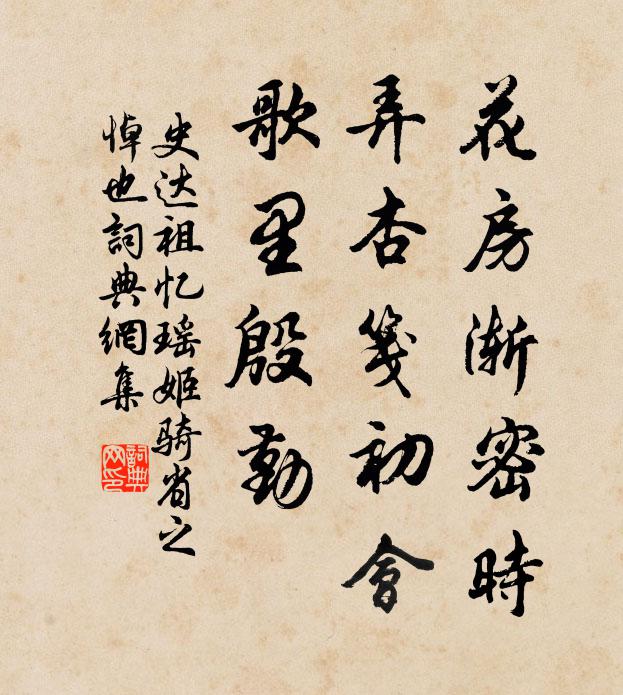 花房渐密時
弄杏笺初會
歌里殷勤
史达祖忆瑶姬骑省之
悼也詞典網集
詞典
网印